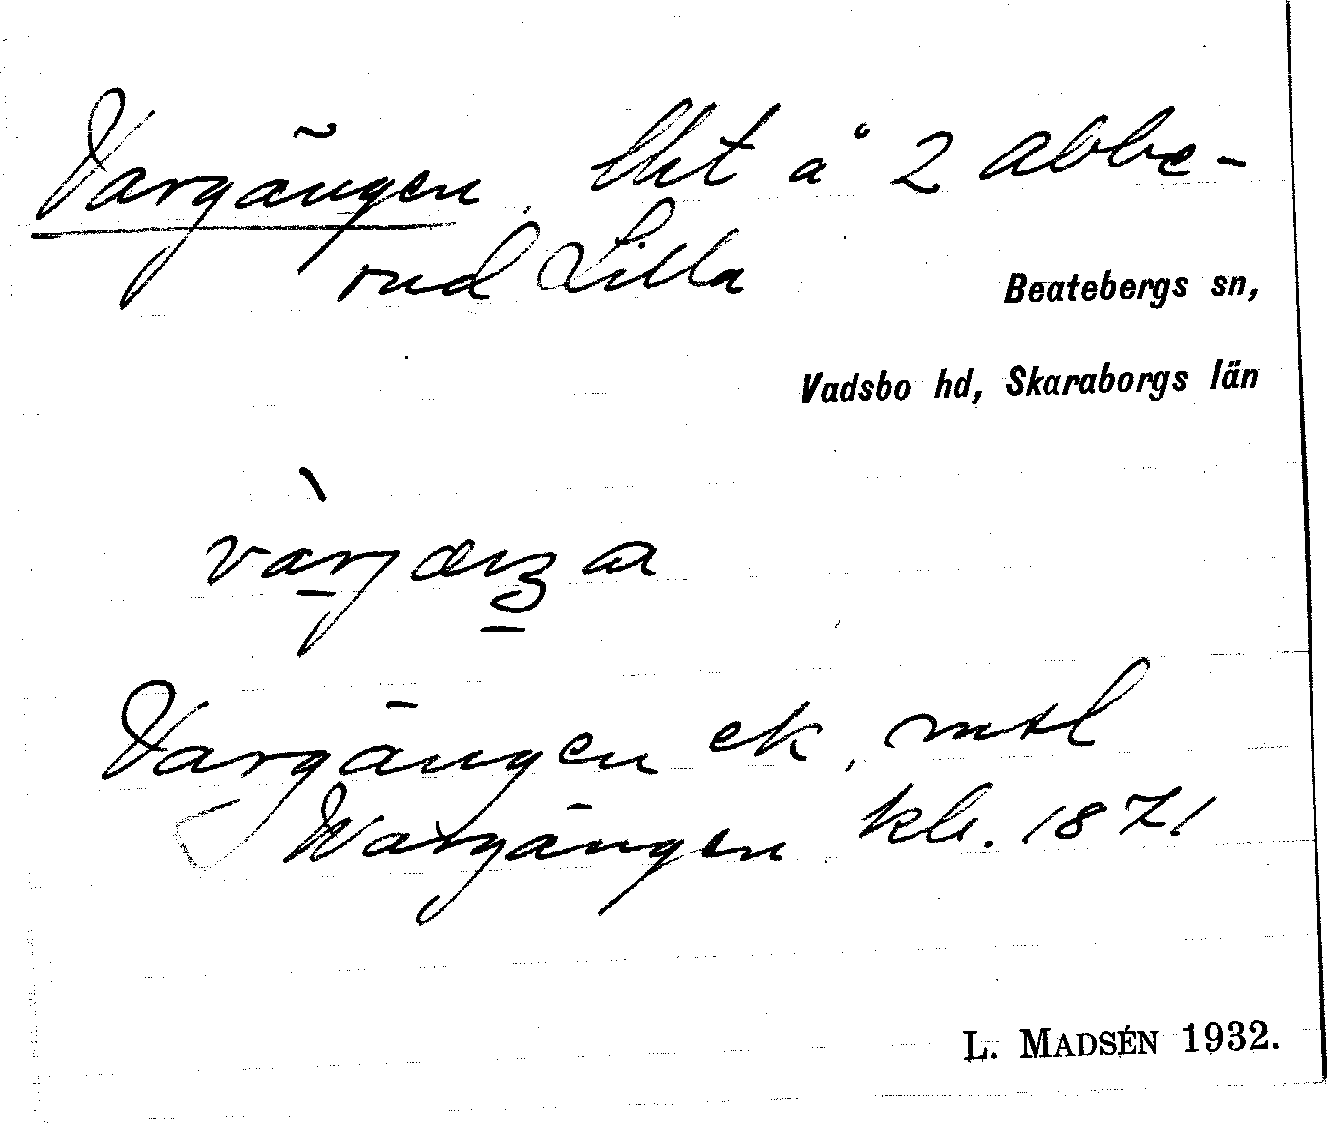 Vargängen, lht å 2 Abbe-
rud Lilla
Beatebergs sn,
Vadsbo hd, Skaraborgs län
Vargängen ek, mtl
Wargängen kb. 1871
L. MADSÉN 1932.